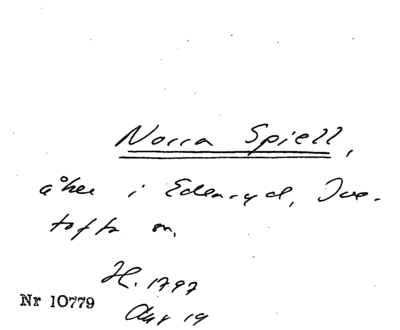 Norra Spiell,
åker i Edenryd, Ive-
tofta sn.
H. 1797
Akt 19
Nr 10779